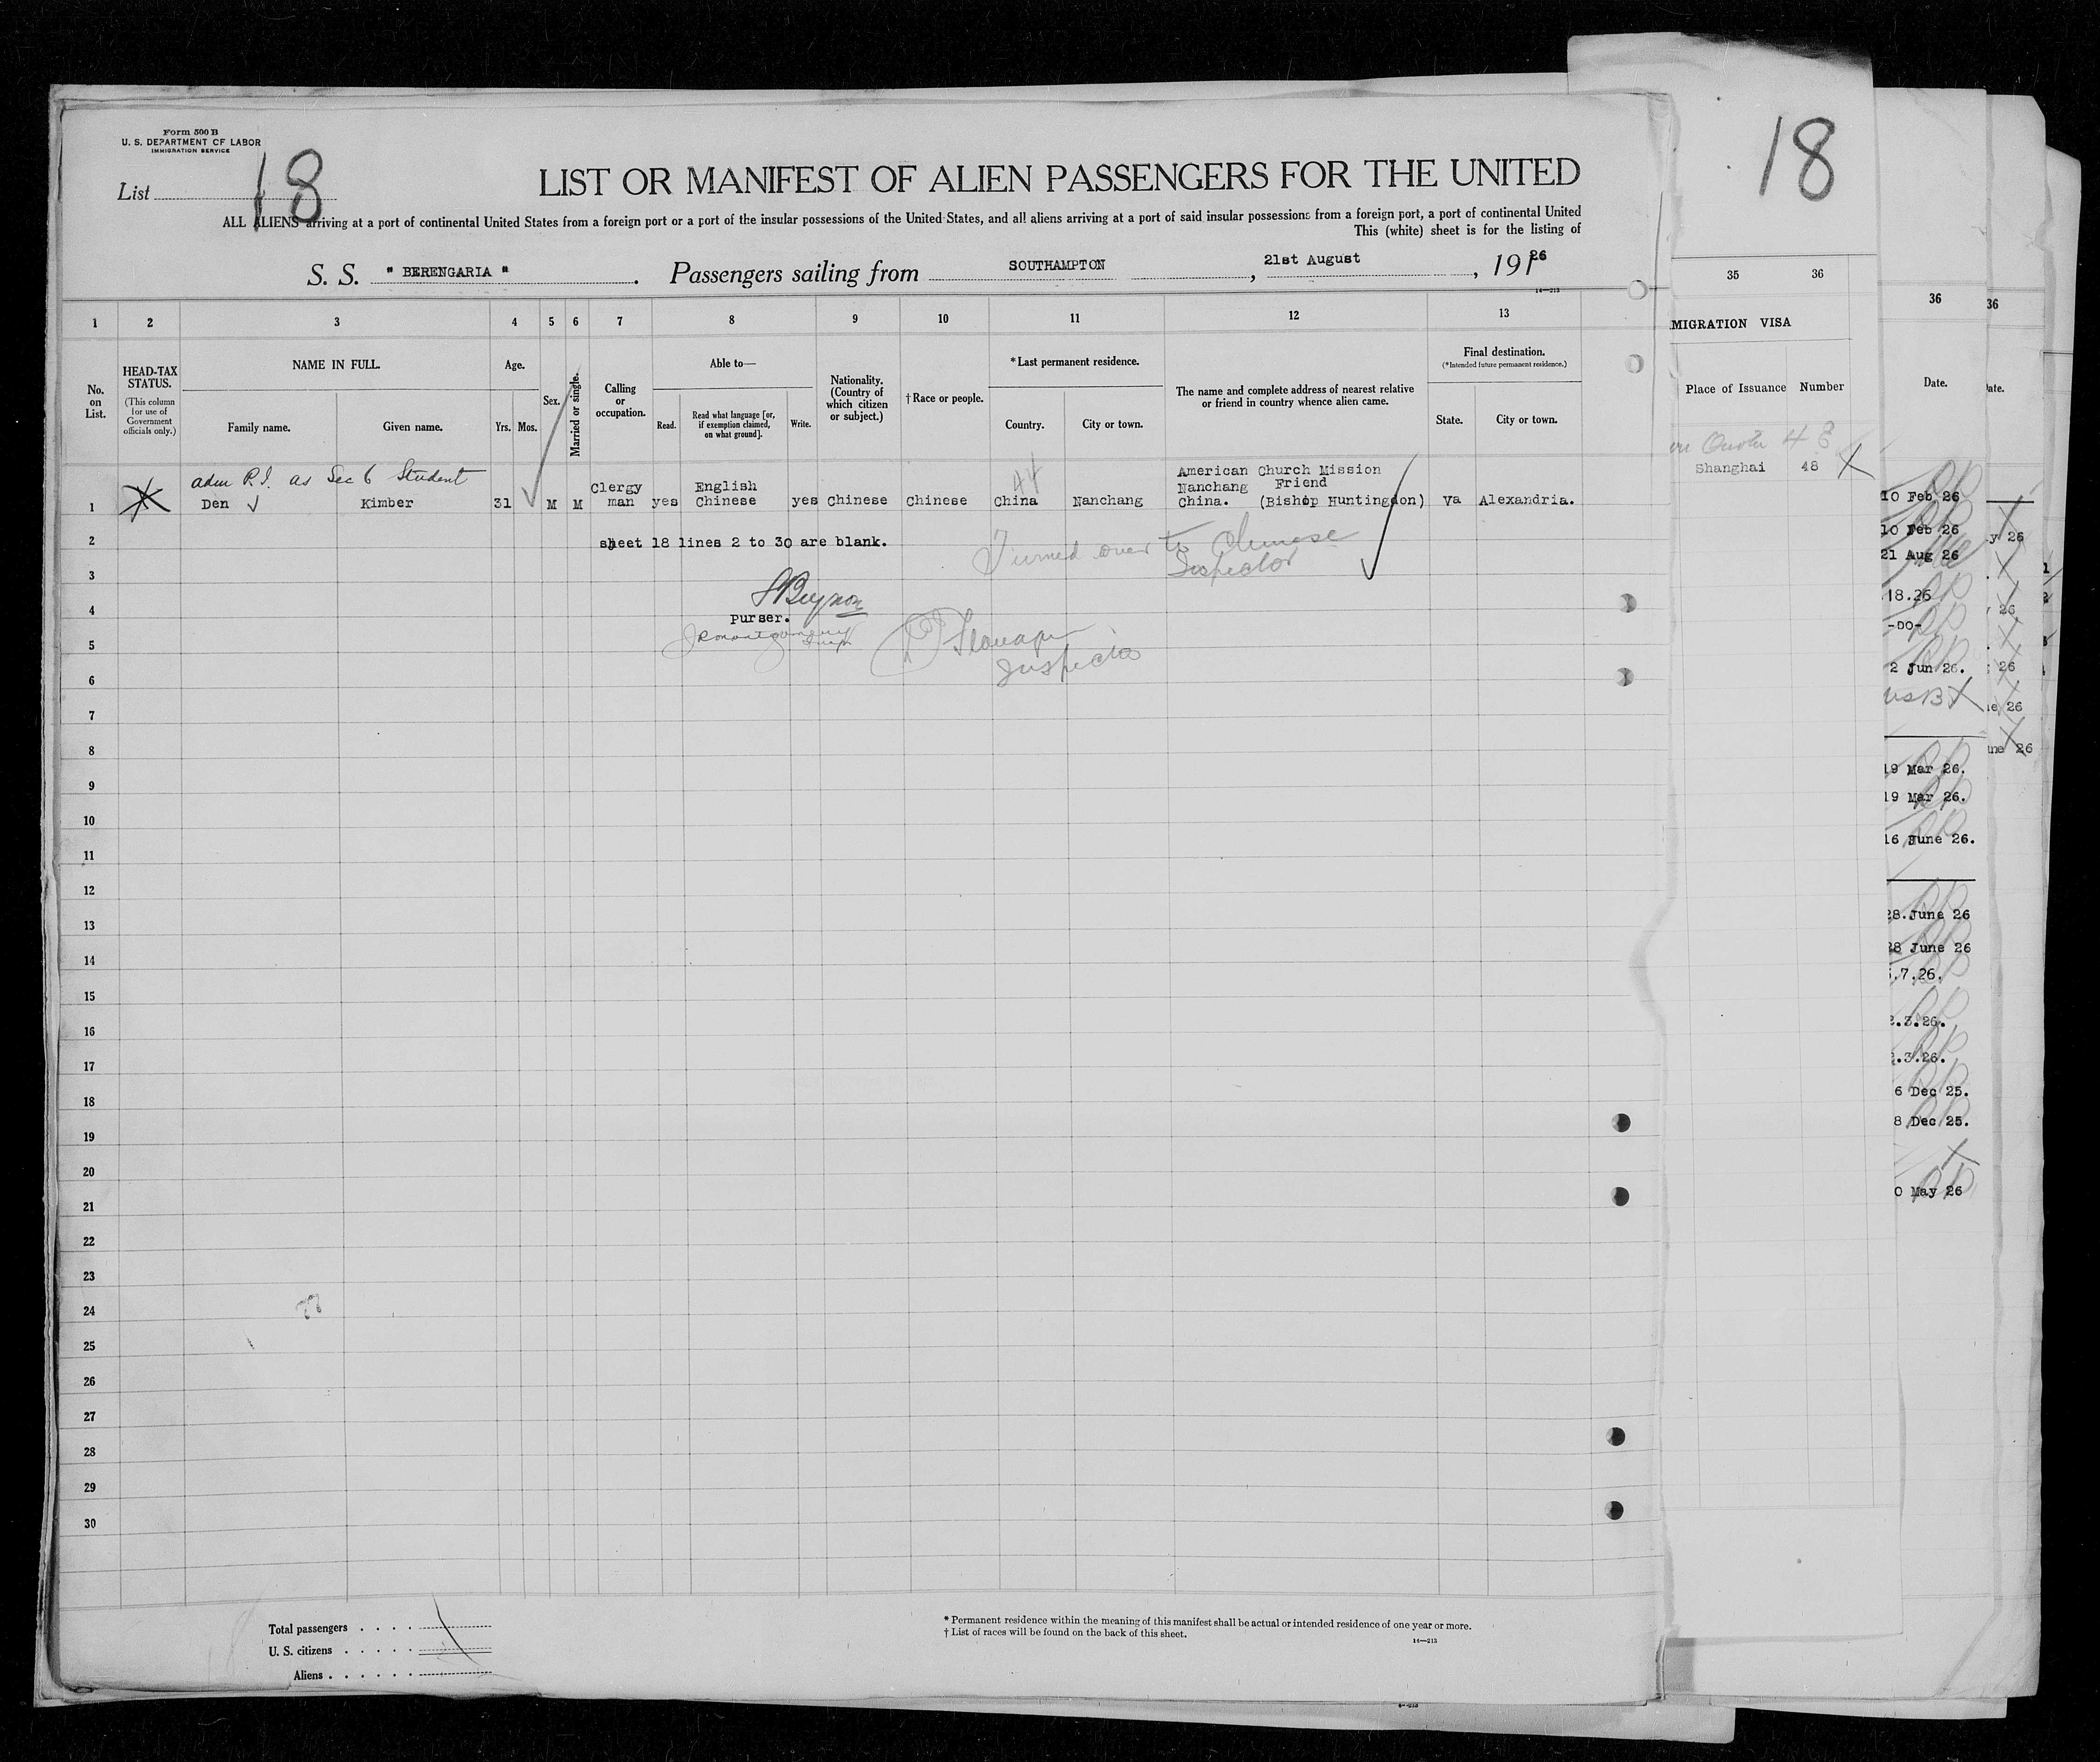 Form 500 B
U. S. DEPARTMENT OF LABOR
IMMIGRATION SERVICE
List 18
LIST OR MANIFEST OF ALIEN PASSENGERS FOR THE UNITED
ALL ALIENS arriving at a port of continental United States from a foreign port or a port of the insular possessions of the United States, and all aliens arriving at a port of said insular possessions from a foreign port, a port of continental United
This (white) sheet is for the listing of
S. S. " BERENGARIA " . Passengers sailing from SOUTHAMPTON , 21st August , 191 26
14—213
1 2 3 4 5 6 7 8 9 10 11 12 13
No. on List.
HEAD-TAX STATUS.
(This column for use of Government officials only.)
NAME IN FULL.
Family name. Given name.
Age.
Yrs. Mos.
Sex.
Married or single.
Calling or occupation.
Able to—
Read. Read what language [or, if exemption claimed, on what ground]. Write.
Nationality. (Country of which citizen or subject.)
† Race or people.
* Last permanent residence.
Country. City or town.
The name and complete address of nearest relative or friend in country whence alien came.
Final destination.
(*Intended future permanent residence.)
State. City or town.
adm P.I. as Sec 6 Student
44
American Church Mission
Clergy English Nanchang Friend
1 Den Kimber 31 M M man yes Chinese yes Chinese Chinese China Nanchang China. (Bishop Huntingdon) Va Alexandria.
2 sheet 18 lines 2 to 30 are blank. Turned over to Chinese
3 Inspector
4
Purser.
5
Inspector
6
7
8
9
10
11
12
13
14
15
16
17
18
19
20
21
22
23
24
25
26
27
28
29
30
Total passengers
U. S. citizens
Aliens
* Permanent residence within the meaning of this manifest shall be actual or intended residence of one year or more.
† List of races will be found on the back of this sheet.
14—213
18
35 36
MIGRATION VISA
Place of Issuance Number
Quota 48
Shanghai 48
36
Date.
10 Feb 26
10 Feb 26
21 Aug 26
18.26
-DO-
2 Jun 26.
19 Mar 26.
19 Mar 26.
16 June 26.
28.June 26
28 June 26
.7.26.
2.3.26.
2.3.26.
6 Dec 25.
8 Dec 25.
0 May 26
36
ate.
y 26
26
26
e 26
une 26